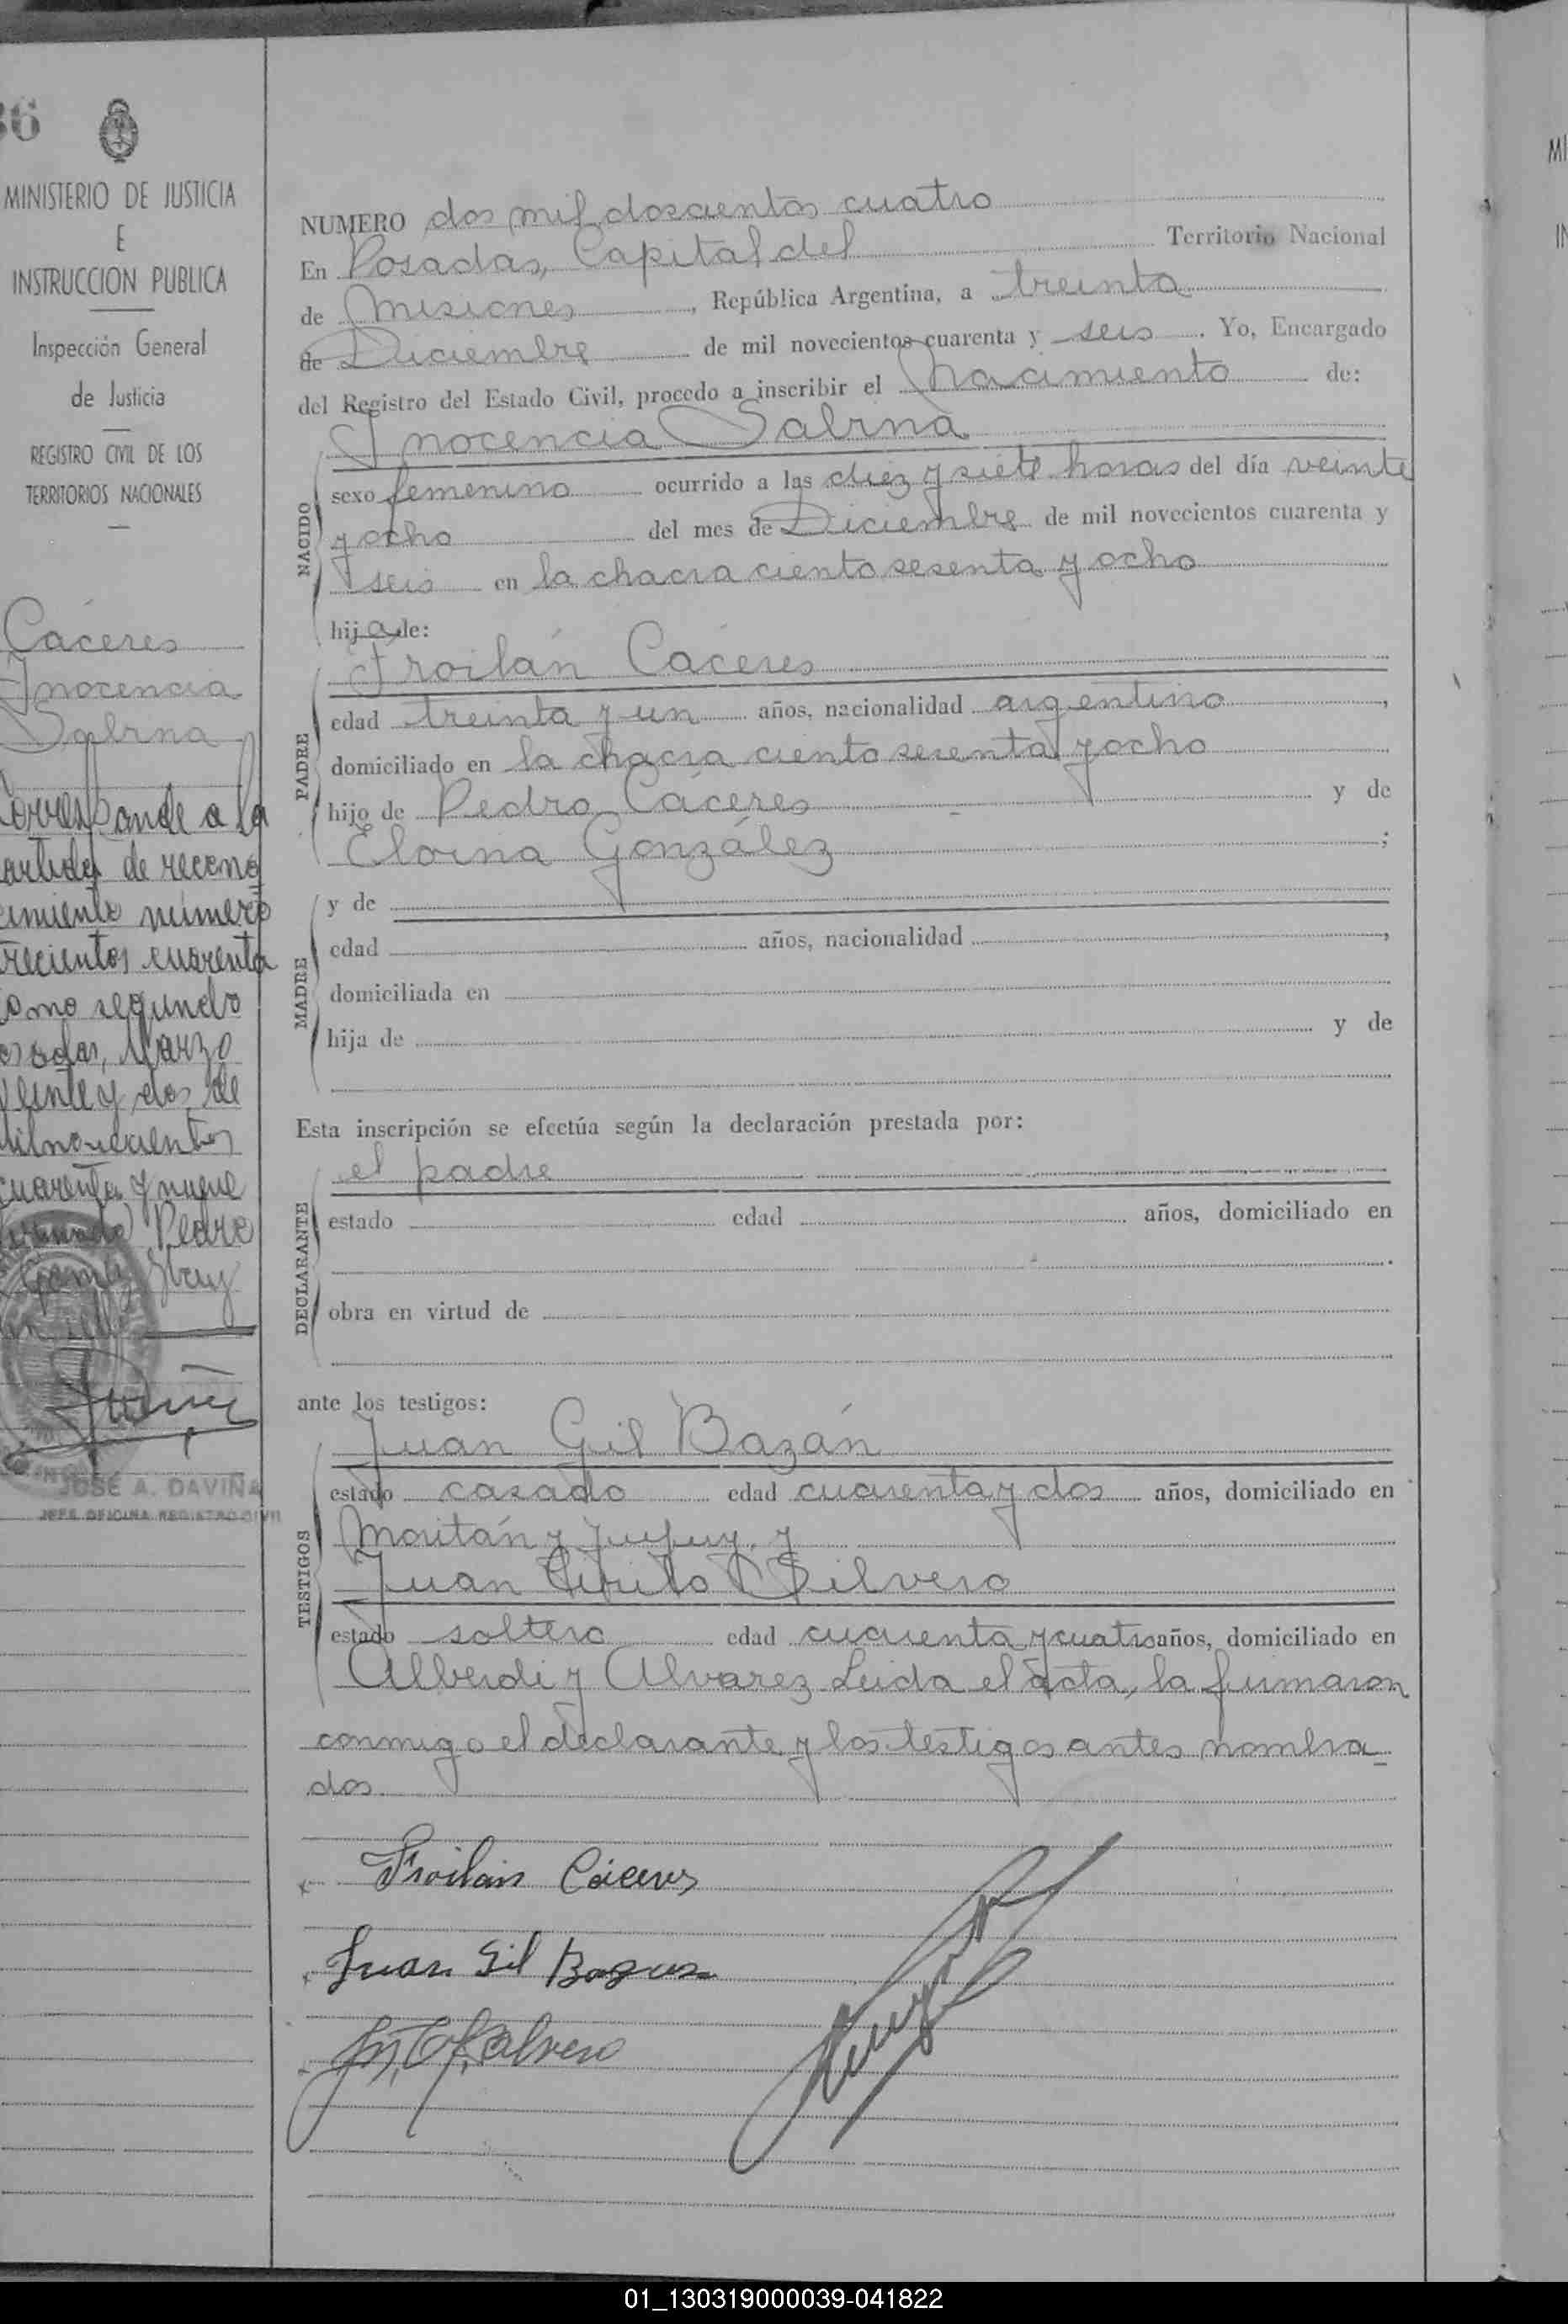 36
MINISTERIO DE JUSTICIA
E
INSTRUCCION PUBLICA
Inspección General
de Justicia
REGISTRO CIVIL DE LOS
TERRITORIOS NACIONALES
Cáceres
Inocencia
Sabrna
Corresponde a la
artida de recono
cimiento número
trecientos cuarenta
como segundo
osadas, Marzo
veinte y dos de
milnovecientos
cuarenta y nueve
Pedro
JOSE A. DAVIÑA
JEFE OFICINA REGISTRO CIVIL
NUMERO dos mil doscientos cuatro
En Posadas, Capital del Territorio Nacional
de Misiones, República Argentina, a treinta
de Diciembre de mil novecientos cuarenta y seis. Yo, Encargado
del Registro del Estado Civil, procedo a inscribir el nacimiento de:
Inocencia Sabrna
NACIDO
sexo femenino ocurrido a las diez y siete horas del día veinte
y ocho del mes de Diciembre de mil novecientos cuarenta y
seis en la chacra ciento sesenta y ocho
hija de:
Froilán Cáceres
PADRE
edad treinta y un años, nacionalidad argentino,
domiciliado en la chacra ciento sesenta y ocho
hijo de Pedro Cáceres y de
Eloina González;
MADRE
y de
edad años, nacionalidad,
domiciliada en
hija de y de
Esta inscripción se efectúa según la declaración prestada por:
el padre
DECLARANTE
estado edad años, domiciliado en
obra en virtud de
ante los testigos:
Juan Gil Bazán
TESTIGOS
estado casado edad cuarenta y dos años, domiciliado en
Moritán y Jujuy, y
Juan Cirilo Silvero
estado soltero edad cuarenta y cuatro años, domiciliado en
Alberdi y Alvarez Leida el acta, la firmaron
conmigo el declarante y los testigos antes nombra-
dos.
Froilán Cáceres
Juan Gil Bazan
01_130319000039-041822